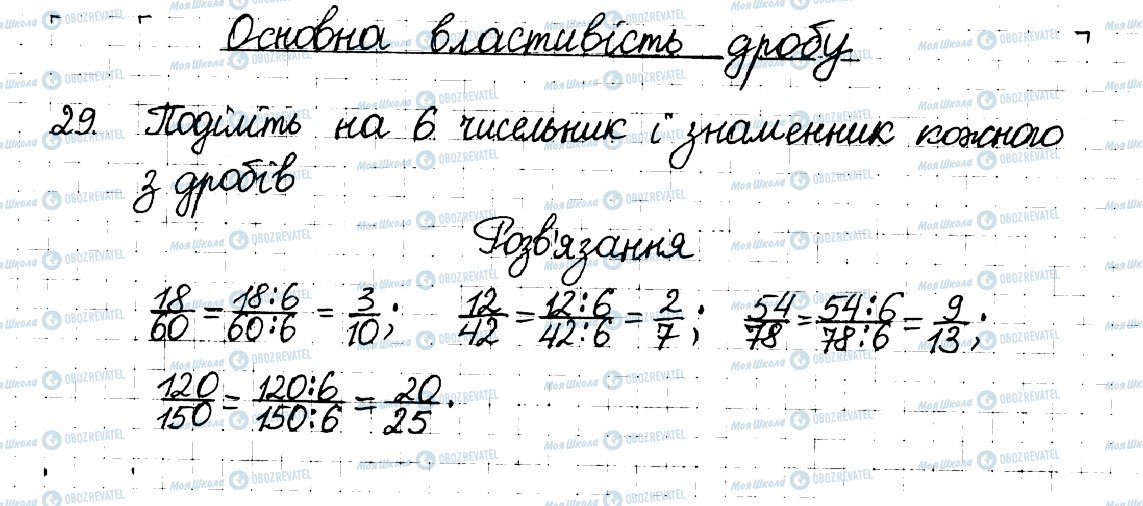 Основна властивість дробу
29. Поділіть на 6 чисельник і знаменник кожного
з дробів
Розв'язання
18/60 = 18:6/60:6 = 3/10; 12/42 = 12:6/42:6 = 2/7; 54/78 = 54:6/78:6 = 9/13;
120/150 = 120:6/150:6 = 20/25.
МояШкола OBOZREVATEL